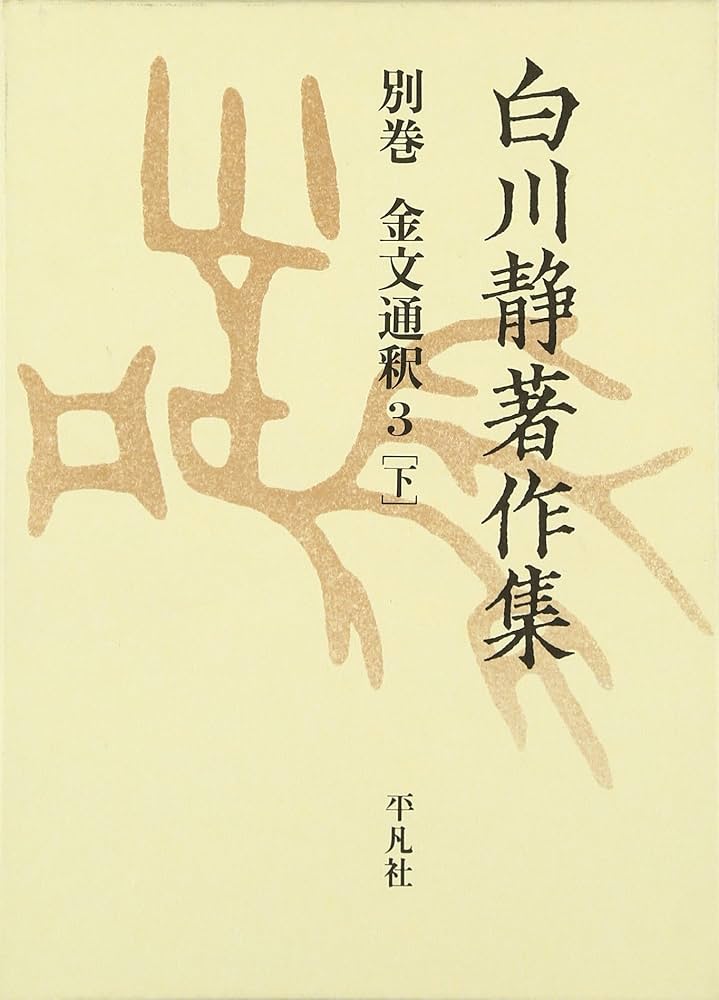 白川静著作集
別巻 金文通釈3[下]
平凡社